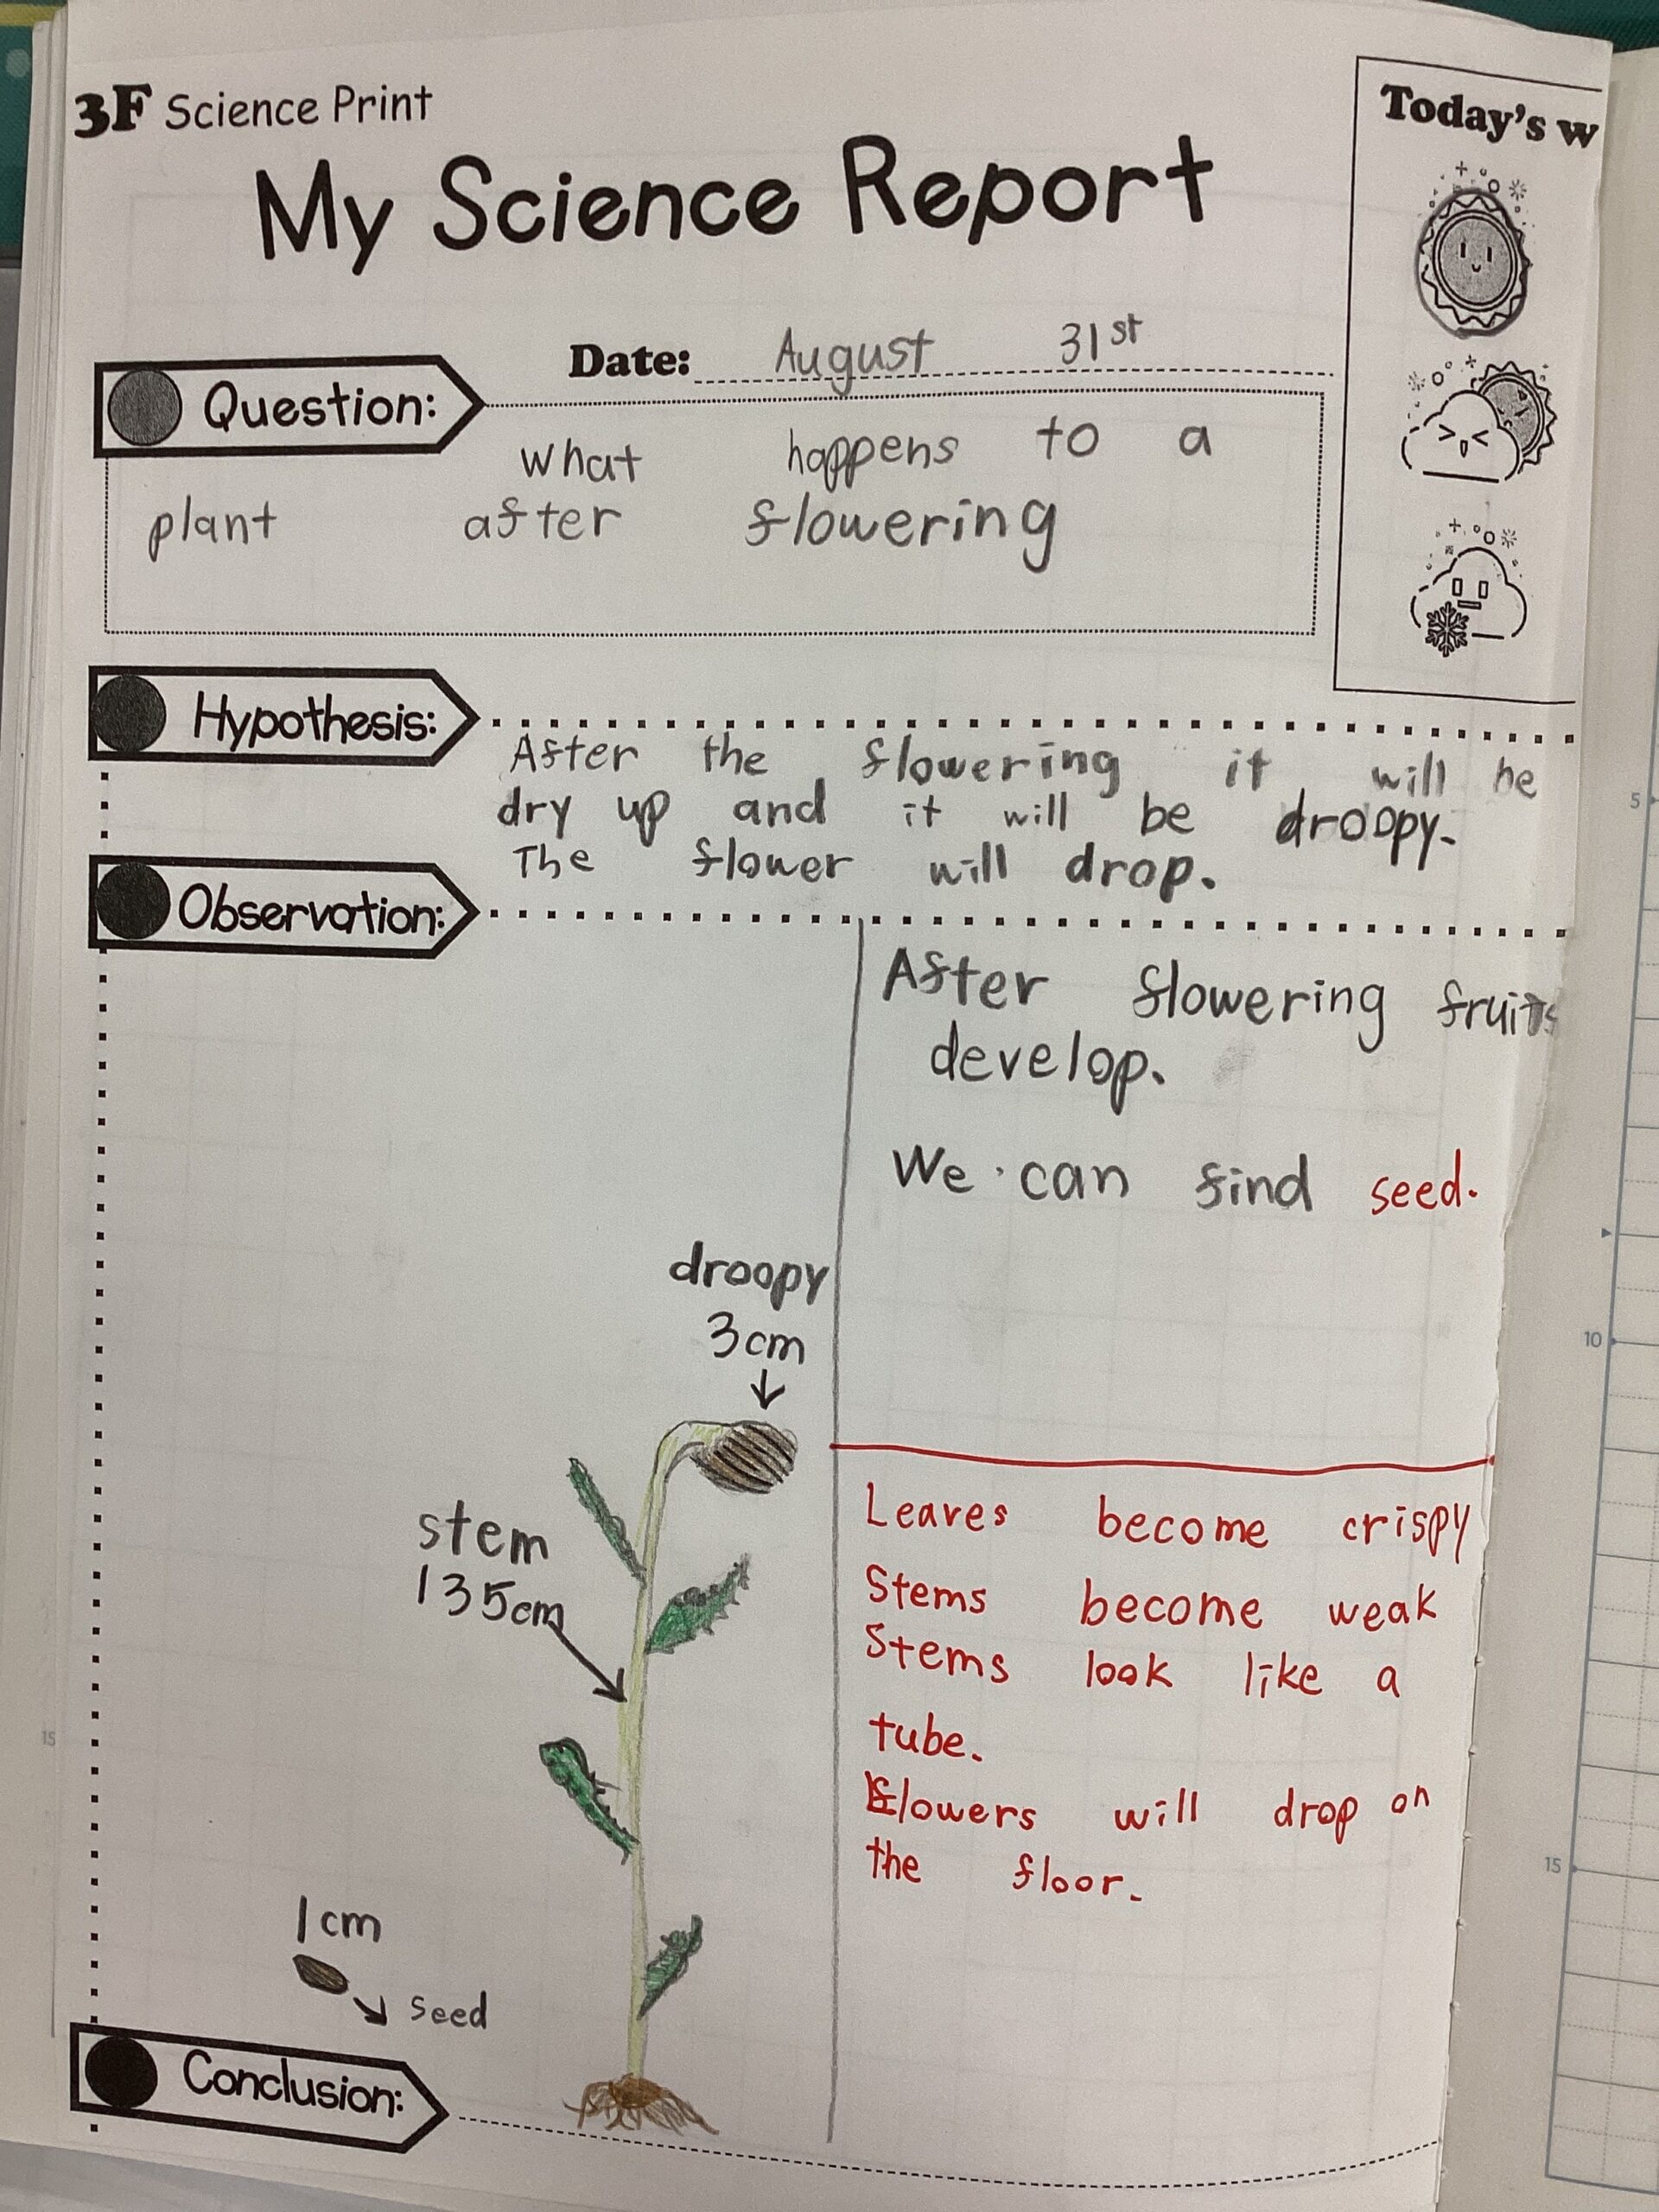 3F Science Print
My Science Report
Today's w
Date: August 31st
Question:
what happens to a
plant after flowering
Hypothesis:
After the flowering it will be
dry up and it will be droopy.
The flower will drop.
Observation:
After flowering fruits
develop.
We can find seed.
droopy
3cm
stem
135cm
1cm
seed
Leaves become crispy
Stems become weak
Stems look like a
tube.
Flowers will drop on
the floor.
Conclusion:
5
10
15
15